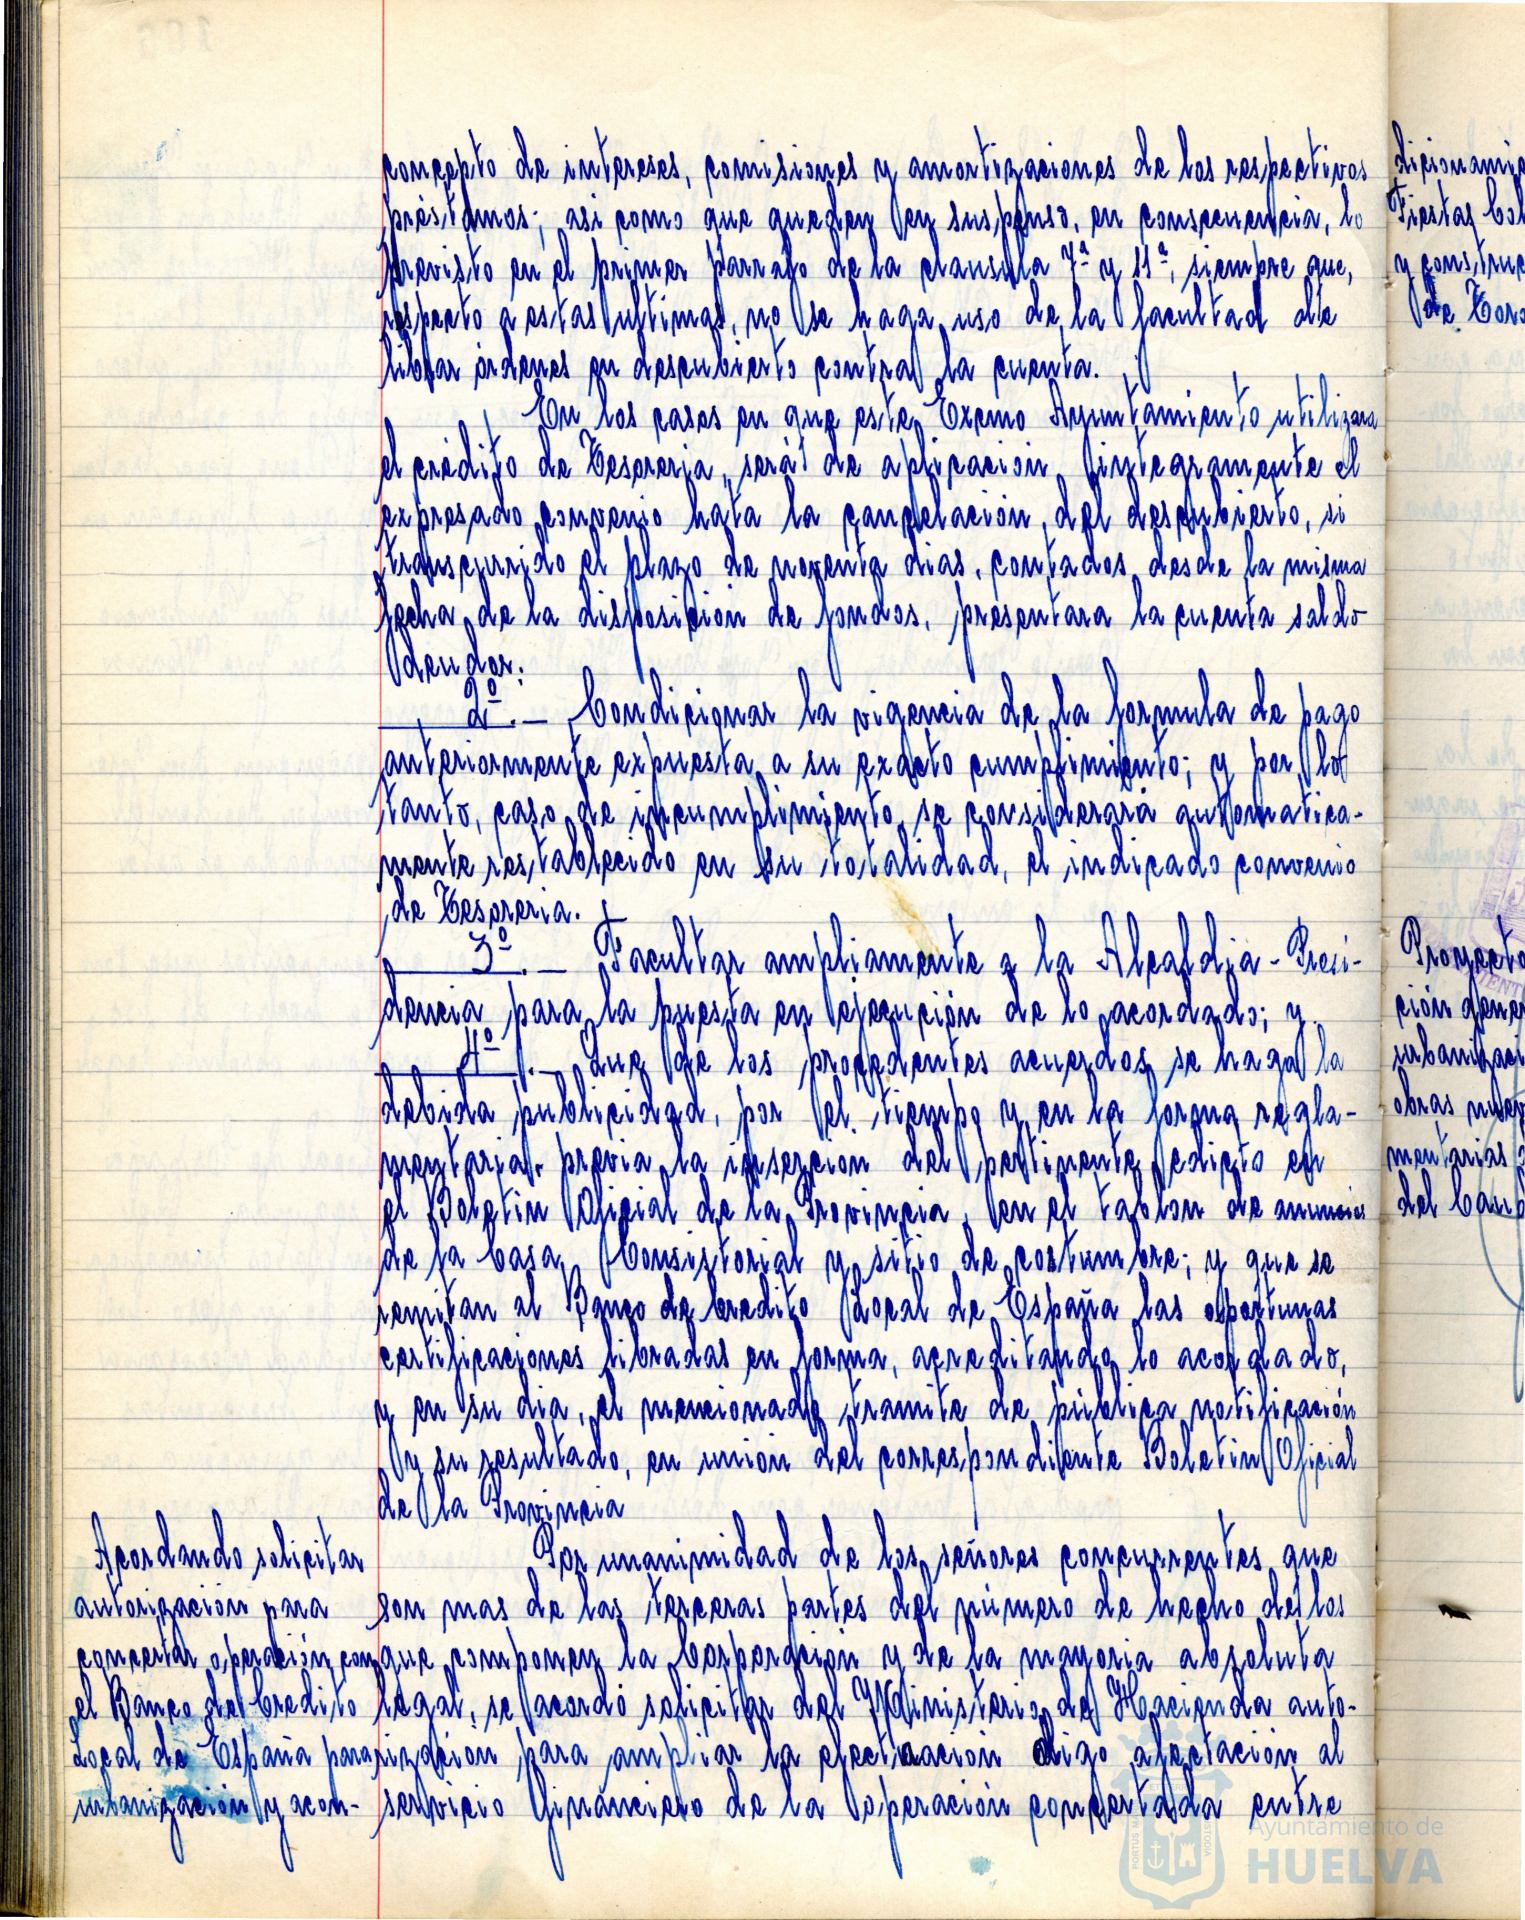 concepto de intereses, comisiones y amortizaciones de los respectivos
préstamos; asi como que queden en suspenso, en consecuencia, lo
previsto en el primer párrafo de la clausula 7ª y 11ª, siempre que,
respecto a estas ultimas, no se haga uso de la facultad de
librar órdenes en descubierto contra la cuenta.
En los casos en que este Excmo Ayuntamiento utilizara
el crédito de Tesoreria, será de aplicación integramente el
expresado convenio hata la cancelación del descubierto, si
transcurrido el plazo de noventa dias, contados desde la misma
fecha de la disposición de fondos, presentara la cuenta saldo
deudor.
2º.- Condicionar la vigencia de la formula de pago
anteriormente expuesta a su exacto cumplimiento; y por lo
tanto, caso de incumplimiento se considerará automatica-
mente restablecido en su totalidad, el indicado convenio
de Tesoreria.
3º.- Facultar ampliamente a la Alcaldia-Presi-
dencia para la puesta en ejecución de lo acordado; y
4º.- Que de los precedentes acuerdos se haga la
debida publicidad, por el tiempo y en la forma regla-
mentaria, previa la inserción del pertinente edicto en
el Boletin Oficial de la Provincia, en el tablón de anuncios
de la Casa Consistorial y sitio de costumbre; y que se
remitan al Banco de Credito Local de España las oportunas
certificaciones libradas en forma, acreditando lo acordado,
y en su dia, el mencionado tramite de pública notificación
y su resultado, en unión del correspondiente Boletin Oficial
de la Provincia
Acordando solicitar
autorización para
concertar operación con
el Banco de Credito
Local de España para
urbanización y acon-
Por unanimidad de los señores concurrentes que
son mas de las terceras partes del número de hecho de los
que componen la Corporación y de la mayoria absoluta
legal, se acordó solicitar del Ministerio de Hacienda auto-
rización para ampliar la digo afectación al
servicio financiero de la operación concertada entre
dicionamie
Fiestas Col
y construc
de Toro
Proyecto
ción gener
urbanizaci
obras
mentarias
del
Ayuntamiento de
HUELVA